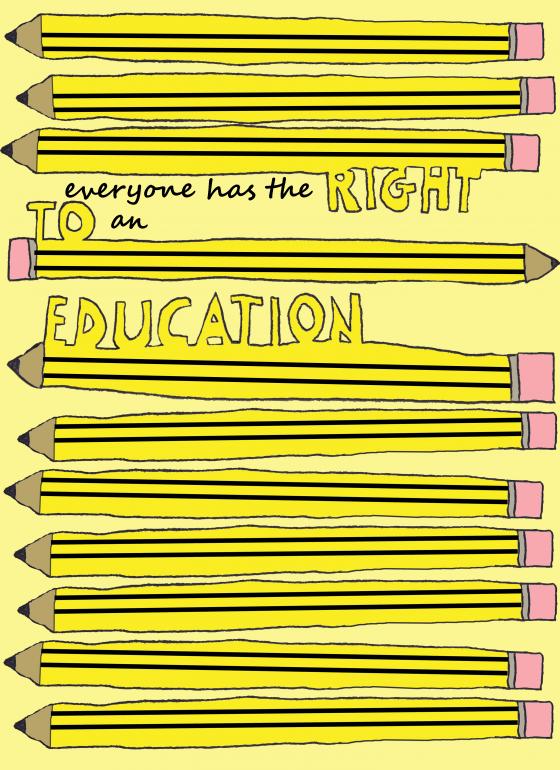 everyone has the RIGHT
TO an
EDUCATION